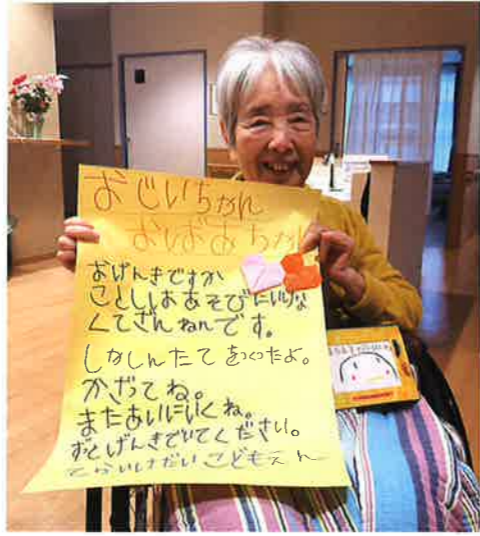 おじいちゃん
おばあちゃん
おげんきですか
ことしはあそびにいけな
くてざんねんです。
しゃしんたてをつくったよ。
かざってね。
またあいにいくね。
ずっとげんきでいてください。
こどもえん